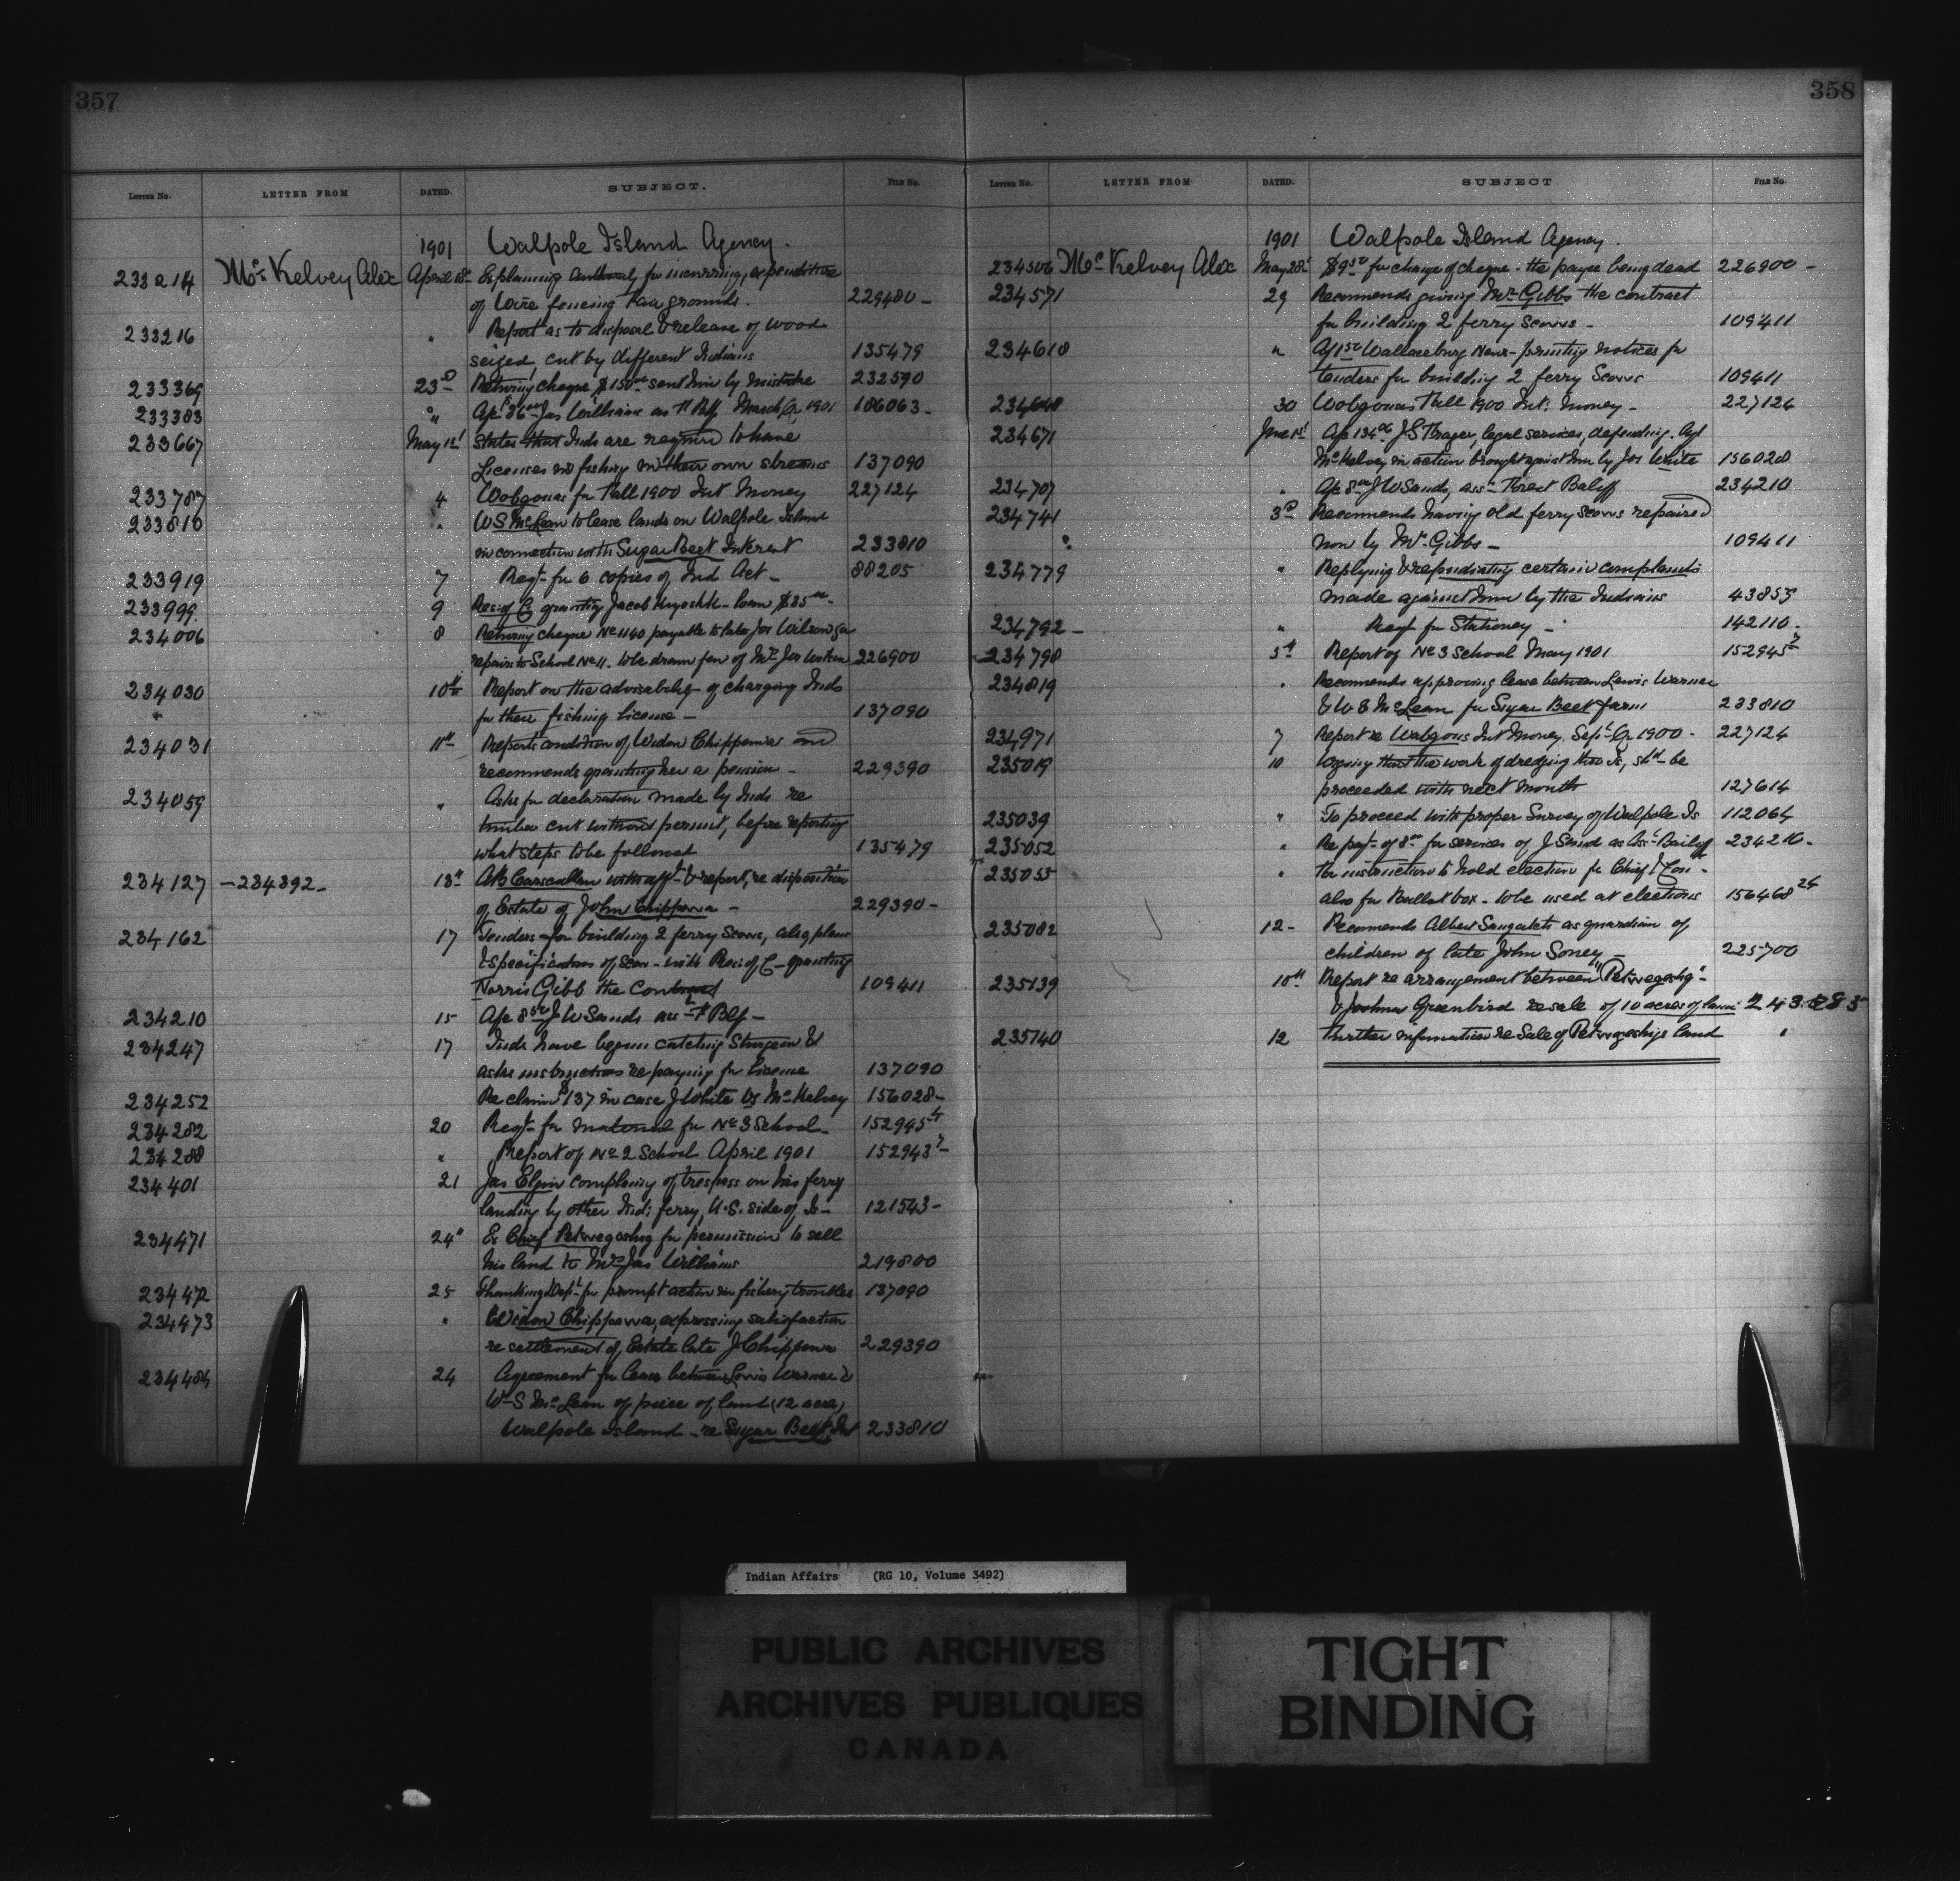 357
LETTER NO. LETTER FROM DATED. SUBJECT. FILE NO.
1901 Walpole Island Agency.
233214 McKelvey Alex April 18th Explaining authority for incurring expenditure
of Wire fencing Fair grounds. 229480 -
233216 " Report as to disposal & release of wood
seized, cut by different Indians 135479
233369 23rd Returning cheque $150.00 sent him by mistake 232590
233383 " James Williams March Qr 1901 186063 -
233667 May 1st States that Inds are required to have
Licenses fishing in their own streams 137090
233787 4 Wobgouas for Fall 1900 Int Money 227124
233810 " W S McLean to lease lands on Walpole Island
in connection with Sugar Beet Interest 233810
233919 7 Reqt for 6 copies of Ind Act - 88205
233999 9 Res: of C granting Jacob loan $35.00 -
234006 8 Returning cheque No 1140 payable to late Jos Wilson for
repairs to School No 1. to be drawn fav of Mrs Jos Wilson 226900
234030 10th Report on the advisability of charging Inds
for their fishing license - 137090
234031 11th Reports condition of Widow Chippewa and
recommends granting her a pension - 229390
234059 " Asks for declaration made by Inds re
timber cut without permit, before reporting
what steps to be followed 135479
234127 -234392- 13th A B Carscallen with afft & report, re disposition
of Estate of John Chippewa - 229390 -
234162 17 Tenders for building 2 ferry Scows, also plans
& specifications of Scow - with Res: of C - granting
Norris Gibb the Contract 109411
234210 15 J W Sands
234247 17 Inds have begun catching Sturgeon &
asks instructions re paying for license 137090
234252 Re claim $137 in case J White vs McKelvey 156028 -
234282 20 Reqt for material for No 3 School - 152945 4
234288 " Report of No 2 School April 1901 152943 7 -
234401 21 Jas Elgin complaining of trespass on his ferry
landing by other Ind: ferry, U.S. side of Is - 121543 -
234471 24" Ex Chief Petwegoshig for permission to sell
his land to Mrs Jas Williams 219800
234472 25 Thanking Dept for prompt action in fishery troubles 137090
234473 " Widow Chippewa, expressing satisfaction
re settlement of Estate late J Chippewa 229390
234484 24 Agreement for lease between Lewis Warner &
W S McLean of piece of land (12 acres)
Walpole Island - re Sugar Beet Int 233810
358
LETTER NO. LETTER FROM DATED. SUBJECT FILE NO.
1901 Walpole Island Agency.
234506 McKelvey Alex May 28th $9.50 for change of cheque - the payee being dead 226900 -
234571 29 Recommends giving Mr Gibbs the contract
for building 2 ferry Scows - 109411
234618 " Wallaceburg News - printing notices for
tenders for building 2 ferry Scows 109411
234648 30 Wobgouas Fall 1900 Int: Money - 227124
234671 June 1st J S Fraser, legal services, defending Agt
McKelvey in action brought against him by Jos White 156028
234707 " J W Sands, asst Forest Baliff 234210
234741 3rd Recommends having old ferry Scows repaired
" now by Mr Gibbs - 109411
234779 " Replying & repudiating certain complaints
made against him by the Indians 43853
234792 - " Reqt for Stationery - 142110 -
234798 5th Report of No 3 School May 1901 152945 7
234819 " Recommends approving lease between Lewis Warner
& W S McLean for Sugar Beet farm 233810
234971 7 Report re Wabgous Int Money Sept Qr 1900 - 227124
235019 10 Urging that the work of dredging thro Is, shd be
proceeded with next month 127614
235039 " To proceed with proper Survey of Walpole Is 112064
235052 " Re payt of 8.00 for services of J Sand as Asst Bailiff 234210 -
235055 " For instruction to hold election for Chief & Con -
also for Ballot box - to be used at elections 156468 24
235082 12 - Recommends Albert Saugatch as guardian of
children of late John Soney - 225700
235139 10th Report re arrangement between "Petwegoshig"
& Joshua Greenbird re sale of 10 acres of land 243285
235140 12 Further information re Sale of Petwegoshigs land "
Indian Affairs (RG 10, Volume 3492)
PUBLIC ARCHIVES
ARCHIVES PUBLIQUES
CANADA
TIGHT
BINDING